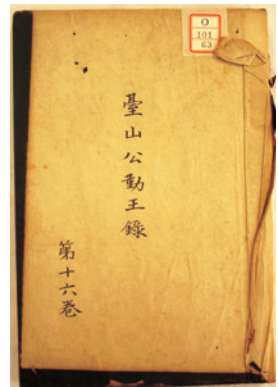 O
101
63
臺山公動王錄
第十六巻